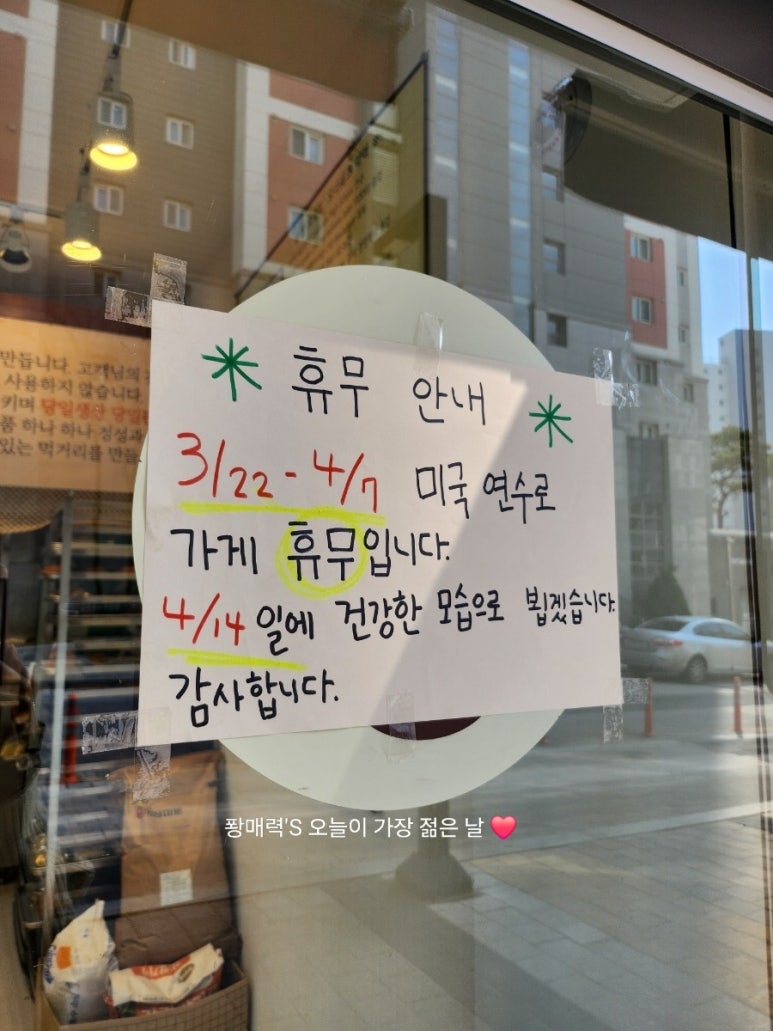 만듭니다. 고객님의
사용하지 않습니다.
키며 당일생산 당일
품 하나 하나 정성과
있는 먹거리를 만듦
* 휴무 안내 *
3/22 - 4/7 미국 연수로
가게 휴무입니다.
4/14 일에 건강한 모습으로 뵙겠습니다.
감사합니다.
퐝매력'S 오늘이 가장 젊은 날 ❤️